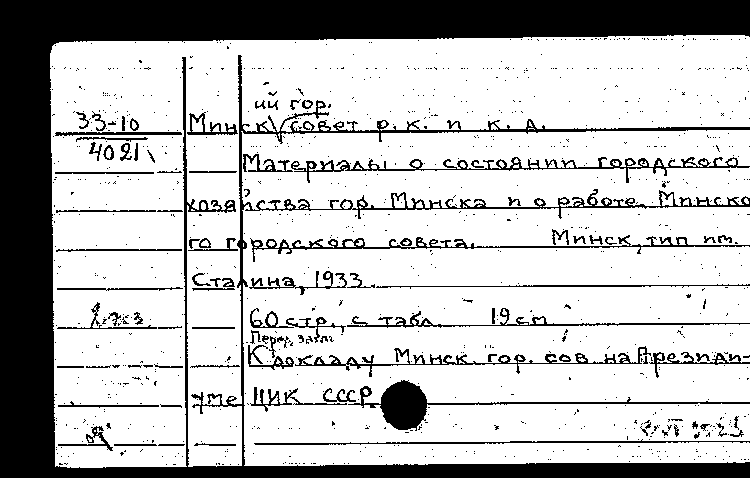 ий гор.
33-10 Минск совет р. к. и к. д.
4021
Материалы о состоянии городского
хозяйства гор. Минска и о работе Минско
го городского совета. Минск, тип им.
Сталина, 1933
2 экз. 60 стр., с табл. 19 см
Перед загл.
К докладу Минск. гор. сов. на Президи-
уме ЦИК СССР